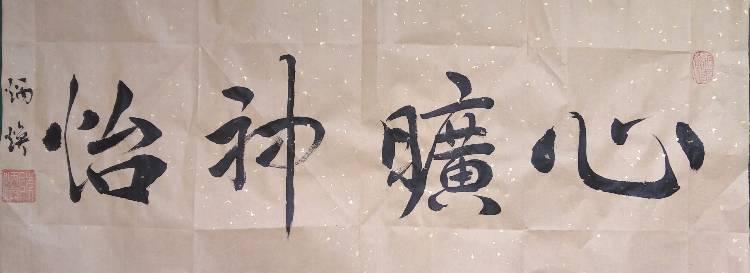 心曠神怡